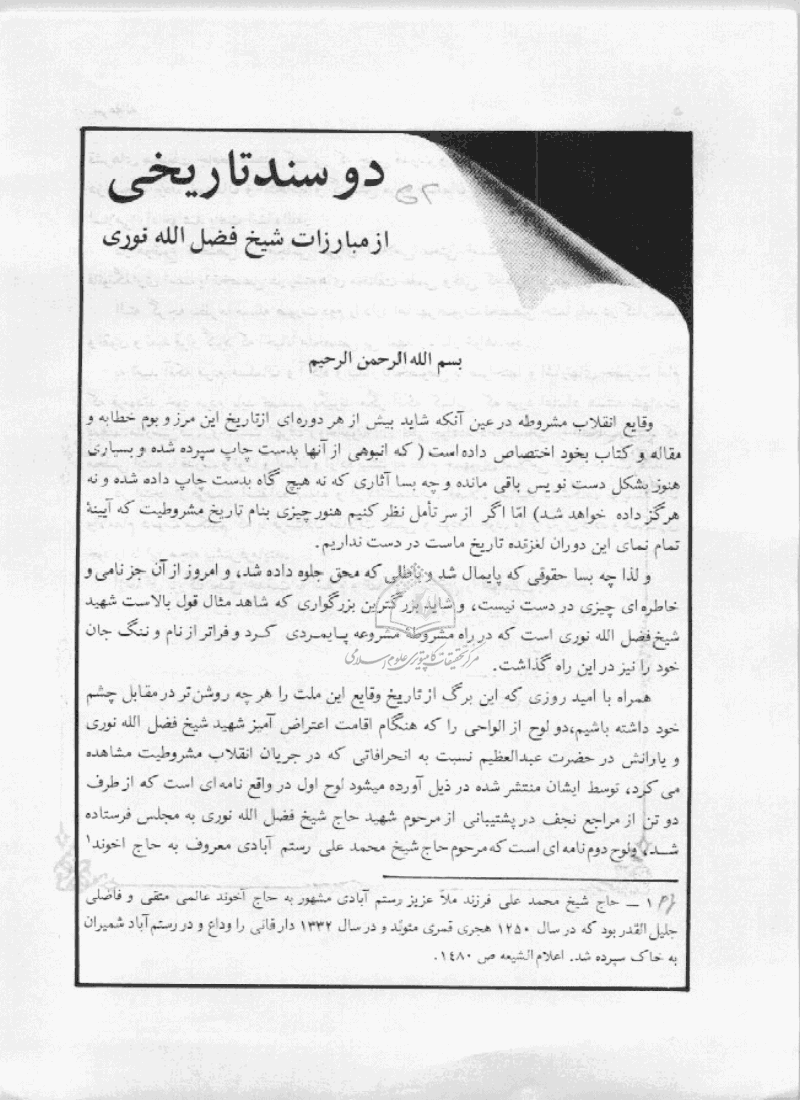 دو سند تاریخی
از مبارزات شیخ فضل الله نوری
بسم الله الرحمن الرحیم
وقایع انقلاب مشروطه در عین آنکه شاید بیش از هر دوره ای از تاریخ این مرز و بوم خطابه و
مقاله و کتاب بخود اختصاص داده است ( که انبوهی از آنها بدست چاپ سپرده شده و بسیاری
هنوز بشکل دست نویس باقی مانده و چه بسا آثاری که نه هیچ گاه بدست چاپ داده شده و نه
هرگز داده خواهد شد) امّا اگر از سر تأمل نظر کنیم هنور چیزی بنام تاریخ مشروطیت که آیینهٔ
تمام نمای این دوران لغزنده تاریخ ماست در دست نداریم.
و لذا چه بسا حقوقی که پایمال شد و باطلی که محق جلوه داده شد، و امروز از آن جز نامی و
خاطره ای چیزی در دست نیست، و شاید بزرگترین بزرگواری که شاهد مثال قول بالاست شهید
شیخ فضل الله نوری است که در راه مشروطهٔ مشروعه پایمردی کرد و فراتر از نام و ننگ جان
خود را نیز در این راه گذاشت.
مرکز تحقیقات کامپیوتری علوم اسلامی
همراه با امید روزی که این برگ از تاریخ وقایع این ملت را هر چه روشن تر در مقابل چشم
خود داشته باشیم، دو لوح از الواحی را که هنگام اقامت اعتراض آمیز شهید شیخ فضل الله نوری
و یارانش در حضرت عبدالعظیم نسبت به انحرافاتی که در جریان انقلاب مشروطیت مشاهده
می کرد، توسط ایشان منتشر شده در ذیل آورده میشود لوح اول در واقع نامه ای است که از طرف
دو تن از مراجع نجف در پشتیبانی از مرحوم شهید حاج شیخ فضل الله نوری به مجلس فرستاده
شد، ولوح دوم نامه ای است که مرحوم حاج شیخ محمد علی رستم آبادی معروف به حاج اخوند۱
۱ ـ حاج شیخ محمد علی فرزند ملاّ عزیز رستم آبادی مشهور به حاج آخوند عالمی متقی و فاضلی
جلیل القدر بود که در سال ۱۲۵۰ هجری قمری متولد و در سال ۱۳۳۲ دار فانی را وداع و در رستم آباد شمیران
به خاک سپرده شد. اعلام الشیعه ص ۱۴۸۰.